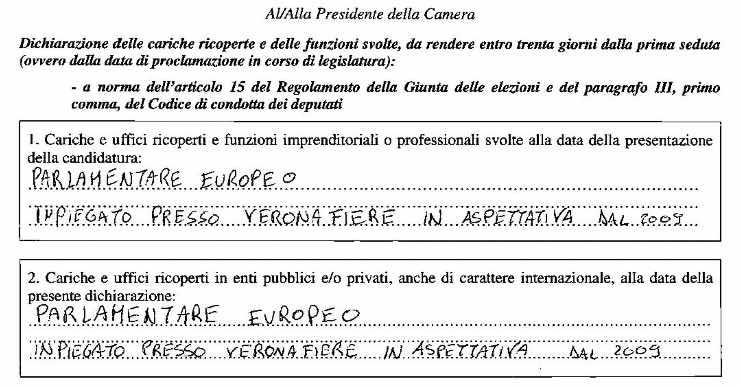 Al/Alla Presidente della Camera
Dichiarazione delle cariche ricoperte e delle funzioni svolte, da rendere entro trenta giorni dalla prima seduta
(ovvero dalla data di proclamazione in corso di legislatura):
- a norma dell'articolo 15 del Regolamento della Giunta delle elezioni e del paragrafo III, primo
comma, del Codice di condotta dei deputati
1. Cariche e uffici ricoperti e funzioni imprenditoriali o professionali svolte alla data della presentazione
della candidatura:
PARLAMENTARE EUROPEO
INPIEGATO PRESSO VERONAFIERE IN ASPETTATIVA DAL 2009
2. Cariche e uffici ricoperti in enti pubblici e/o privati, anche di carattere internazionale, alla data della
presente dichiarazione:
PARLAMENTARE EUROPEO
INPIEGATO PRESSO VERONAFIERE IN ASPETTATIVA DAL 2009